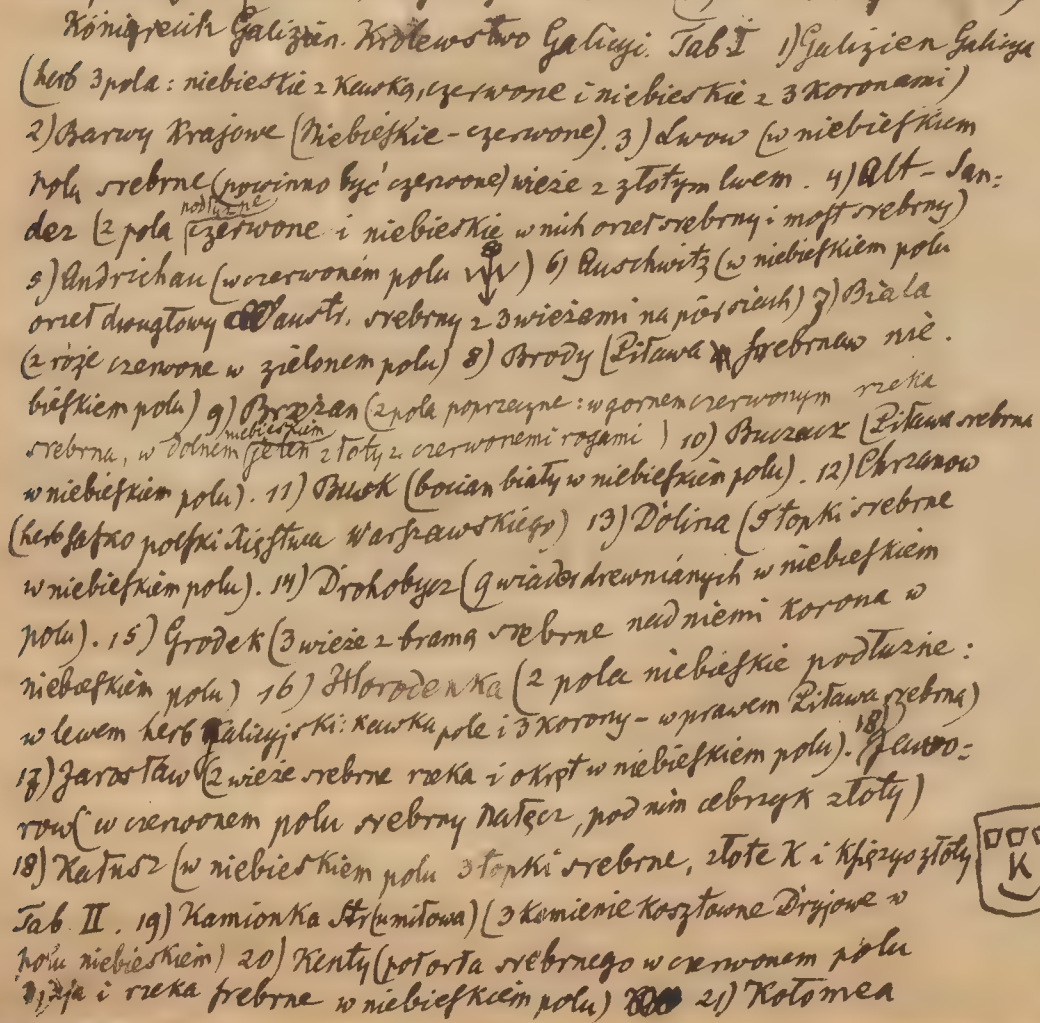 Königreich Galizien. Królewstwo Galicyi. Tab. I 1) Galizien Galicya
(herb 3 pola: niebieskie z kawką, czerwone i niebieskie z 3 koronami)
2) Barwy Krajowe (Niebieskie - czerwone). 3) Lwow (w niebieskiem
polu srebrne (powinno być czerwone) wieże z złotym lwem. 4) Alt-San=
podłużne
dez (2 pola czerwone i niebieskie w nich orzeł srebrny i most srebrny)
5) Andrichau (w czerwoném polu W) 6) Auschwitz (w niebieskiem polu
orzeł dwugłowy austr. srebrny z 3 wieżami na piersiach) 7) Biala
(2 róże czerwone w zielonem polu) 8) Brody (Piława srebrna w nie.
bieskiem polu) 9) Brzeżan (2 pola poprzeczne: w gornem czerwonym rzeka
niebieskiem
srebrna, w dolnem jeleń złoty z czerwonemi rogami) 10) Buczacz (Piława srebrna
w niebieskiem polu). 11) Busk (bocian biały w niebieskiem polu). 12) Chrzanow
(herb sasko polski Xięstwa Warszawskiego) 13) Dolina (5 topki srebrne
w niebieskiem polu). 14) Drohobycz (9 wiader drewnianych w niebieskiem
polu). 15) Grodek (3 wieże z bramą srebrne nad niemi korona w
niebieskiem polu) 16) Horodenka (2 pola niebieskie podłużne:
w lewem herb Galicyjski: kawka pole i 3 korony - w prawem Piława srebrna)
17) Jarosław (2 wieże srebrne rzeka i okręt w niebieskiem polu). 18) Jawo=
row (w czerwonem polu srebrny Nałęcz, pod nim cebrzyk złoty)
18) Kałusz (w niebieskiem polu 3 topki srebrne, złote K i księżyc złoty
K
Tab II. 19) Kamionka Str(umiłowa) (3 kamienie kosztowne Dryjowe w
polu niebieskiem) 20) Kenty (pół orła srebrnego w czerwonem polu
i rzeka srebrne w niebieskiem polu) 21) Kołomea